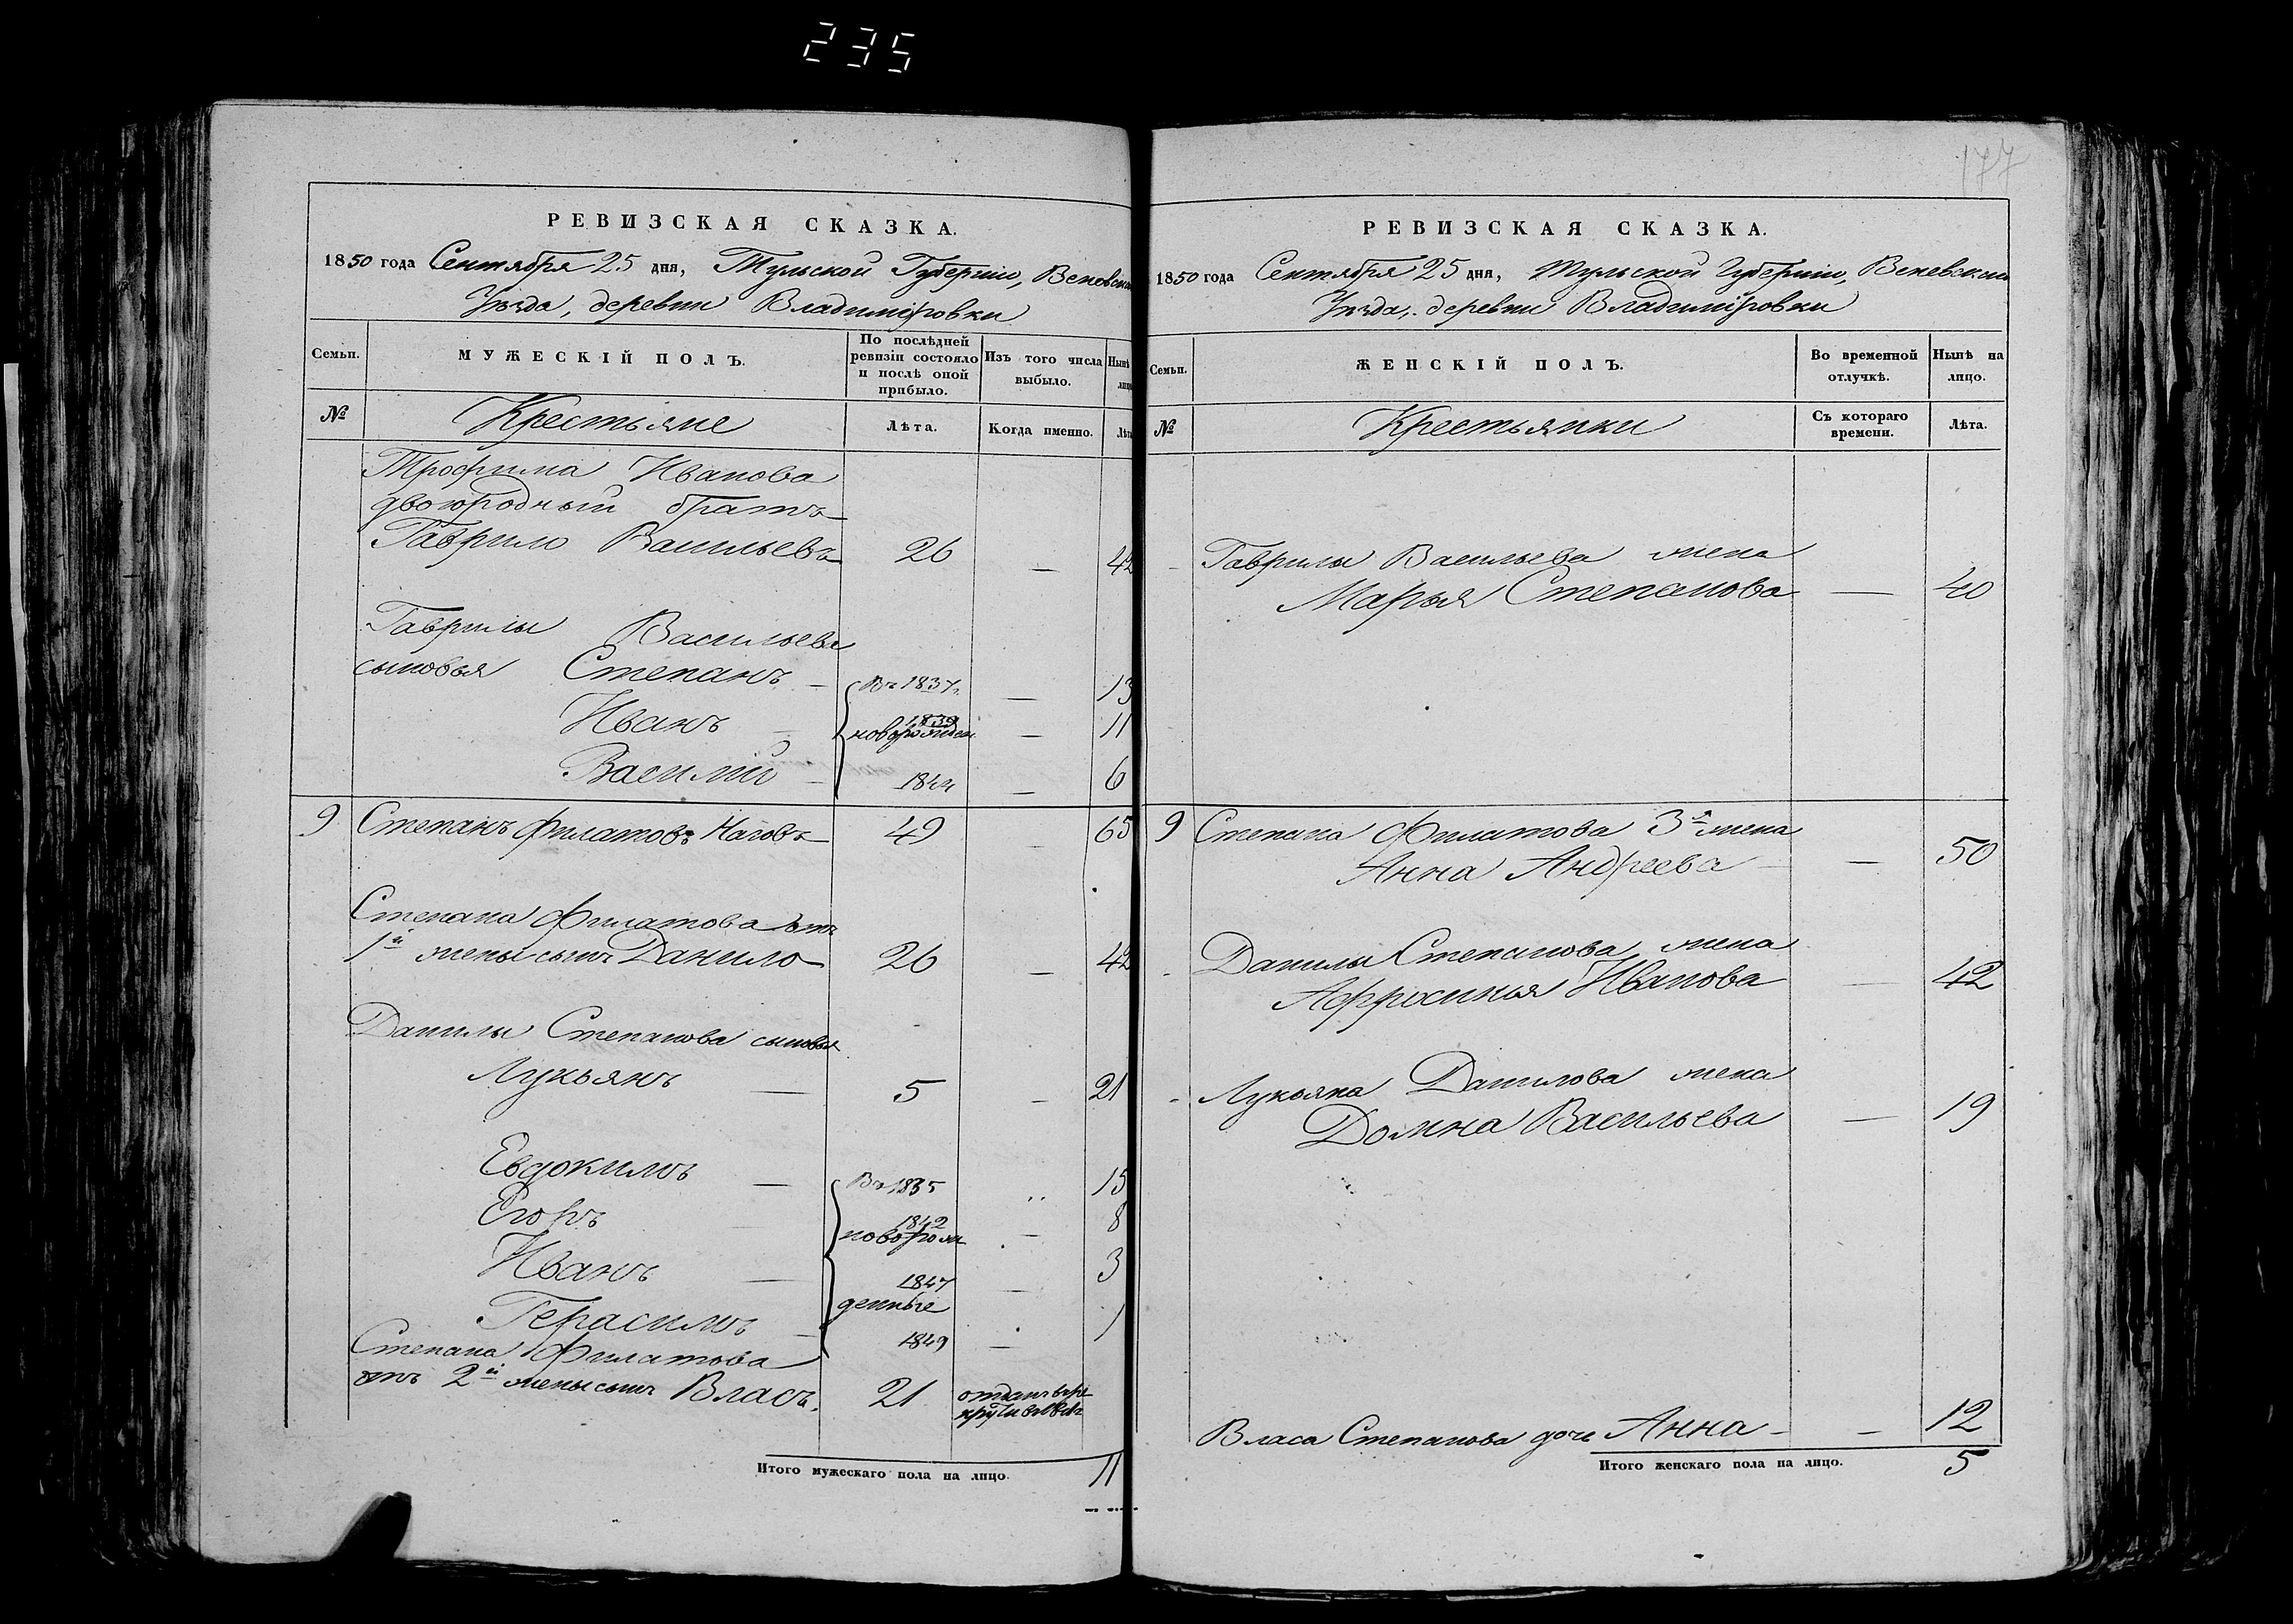 235
177
РЕВИЗСКАЯ СКАЗКА.
1850 года Сентября 25 дня, Тульской Губерніи, Веневска
Уѣзда, деревни Владиміровки
Семьи.
МУЖЕСКІЙ ПОЛЪ.
По послѣдней ревизіи состояло и послѣ оной прибыло.
Изъ того числа выбыло.
Нынѣ лицо
№
Крестьяне
Лѣта.
Когда именно.
Лѣта
Трофима Иванова
двоюродный братъ
Гаврило Васильевъ 26 — 42
Гаврилы Васильева
сыновья Степанъ — Въ 1837 — 13
Иванъ — 1839 новорожден — 11
Василій — 1844 — 6
9 Степанъ Филатовъ Наговъ 49 — 65
Степана Филатова отъ
1й жены сынъ Данило 26 — 42
Данилы Степанова сыновья
Лукьянъ — 5 — 21
Евдокимъ — Въ 1835 15
Егоръ 1842 новорож — 8
Иванъ — 1847 — 3
денные
Герасимъ — 1849 — 1
Степана Филатова
отъ 2й жены сынъ Власъ. 21 отданъ въ ре
круты въ
Итого мужескаго пола на лицо. 11
РЕВИЗСКАЯ СКАЗКА.
1850 года Сентября 25 дня, Тульской Губерніи, Веневскаго
Уѣзда, деревни Владиміровки
Семьи.
ЖЕНСКІЙ ПОЛЪ.
Во временной отлучкѣ.
Нынѣ на лицо.
№
Крестьянки
Съ котораго времени.
Лѣта.
Гаврилы Васильева жена
Марья Степанова — 40
9 Степана Филатова 3я жена
Анна Андреева — 50
Данилы Степанова жена
Афросинья Иванова — 42
Лукьяна Данилова жена
Домна Васильева — 19
Власа Степанова дочь Анна — — 12
Итого женскаго пола на лицо. 5